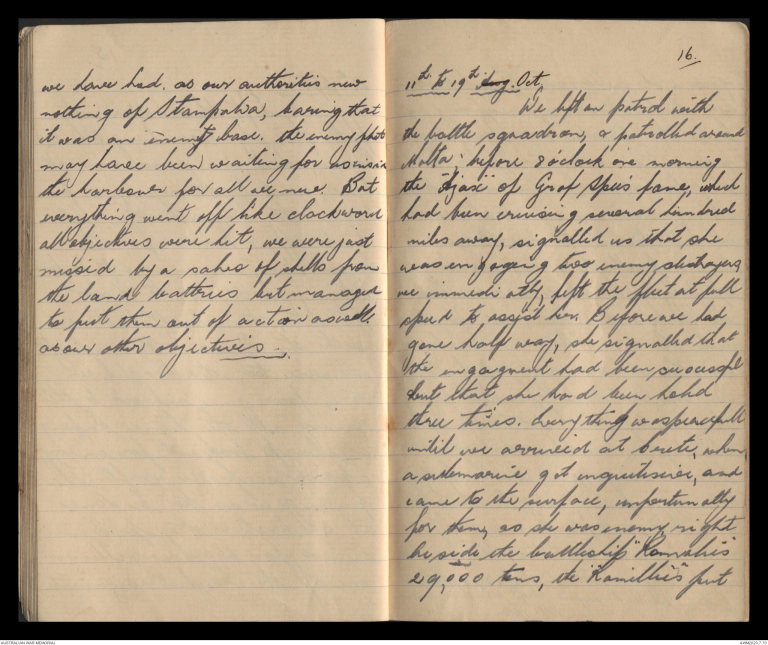 we have had. as our authorities new
nothing of Stampalia, baring that
it was an enemy base. the enemy fleet
may have been waiting for us inside
the harbour for all we new. But
everything went off like clockword
all objectives were hit, we were just
missed by a salvo of shells from
the land batteries but managed
to put them out of action aswell.
as our other objectives.
16.
11th to 19th Aug. Oct.
We left on patrol with
the battle squadron, & patrolled around
Malta: before 8 o'clock one morning
the "Ajax" of Graf Spee's fame, which
had been cruising several hundred
miles away, signalled us that she
was engaging two enemy destroyers,
we immediatly, left the fleet at full
speed to assist her. Before we had
gone half way, she signalled that
the engagment had been successful
but that she had been holed
three times. Everything was peacefull
until we arrived at Crete, when
a submarine got inquisitive, and
came to the surface, unfortunatly
for them, as she was enemy, right
beside the battleship "Ramilies"
29,000 tons, the "Ramillies" put
AUSTRALIAN WAR MEMORIAL